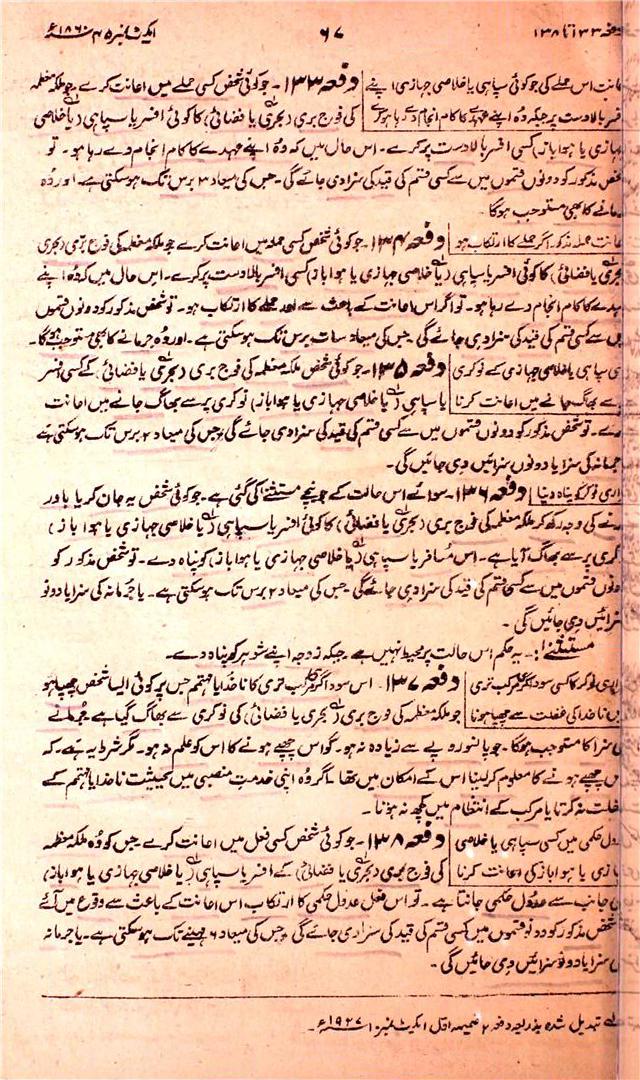 دفعہ ۱۳۳ تا ۱۳۸
۶۷
ایکٹ نمبر ۴۵ ۱۸۶۰ء
اعانت اس حملے کی جو کوئی سپاہی یا خلاصی جہازی اپنے
افسر بالا دست پر جبکہ وہ اپنے عہدے کا کام انجام دے رہا ہو کرے
دفعہ ۱۳۳۔ جو کوئی شخص کسی حملے میں اعانت کرے۔ جو ملکہ معظمہ
کی فوج بری (بحری یا فضائی) کا کوئی افسر یا سپاہی (یا خلاصی
جہازی یا ہوا باز) کسی افسر بالا دست پر کرے۔ اس حال میں کہ وہ اپنے عہدے کا کام انجام دے رہا ہو۔ تو
شخص مذکور کو دونوں قسموں میں سے کسی قسم کی قید کی سزا دی جائے گی۔ جس کی میعاد ۳ برس تک ہو سکتی ہے۔ اور وہ
جرمانے کا بھی مستوجب ہوگا۔
اعانت حملہ مذکور اگر حملے کا ارتکاب ہو
دفعہ ۱۳۴۔ جو کوئی شخص کسی حملہ میں اعانت کرے جو ملکہ معظمہ کی فوج بری (بحری
بحری یا فضائی) کا کوئی افسر یا سپاہی (یا خلاصی جہازی یا ہوا باز) کسی افسر بالا دست پر کرے۔ اس حال میں کہ وہ اپنے
عہدے کا کام انجام دے رہا ہو۔ تو اگر اس اعانت کے باعث سے اور حملے کا ارتکاب ہو۔ تو شخص مذکور کو دونوں قسموں
میں سے کسی قسم کی قید کی سزا دی جائے گی۔ جس کی میعاد سات برس تک ہو سکتی ہے۔ اور وہ جرمانے کا بھی مستوجب ہوگا۔
کسی سپاہی یا خلاصی جہازی کے نوکری
سے بھاگ جانے میں اعانت کرنا
دفعہ ۱۳۵۔ جو کوئی شخص ملکہ معظمہ کی فوج بری (بحری یا فضائی) کے کسی افسر
یا سپاہی (یا خلاصی جہازی یا ہوا باز) نوکری پر سے بھاگ جانے میں اعانت
کرے۔ تو شخص مذکور کو دونوں قسموں میں سے کسی قسم کی قید کی سزا دی جائے گی، جس کی میعاد ۲ برس تک ہو سکتی ہے
جرمانہ کی سزا یا دونوں سزائیں دی جائیں گی۔
فراری نوکر کو پناہ دینا
دفعہ ۱۳۶۔ سوائے اس حالت کے جو نیچے مستثنےٰ کی گئی ہے۔ جو کوئی شخص یہ جان کر یا باور
کرنے کی وجہ رکھ کر ملکہ معظمہ کی فوج بری (بحری یا فضائی) کا کوئی افسر یا سپاہی (یا خلاصی جہازی یا ہوا باز)
نوکری پر سے بھاگ آیا ہے۔ اس مسافر یا سپاہی (یا خلاصی جہازی یا ہوا باز) کو پناہ دے۔ تو شخص مذکور کو
دونوں قسموں میں سے کسی قسم کی قید کی سزا دی جائے گی جس کی میعاد ۲ برس تک ہو سکتی ہے۔ یا جرمانہ کی سزا یا دونو
سزائیں دی جائیں گی۔
مستثنےٰ:۔ یہ حکم اس حالت پر محیط نہیں ہے۔ جبکہ زوجہ اپنے شوہر کو پناہ دے۔
فراری نوکر کا کسی سوداگر مرکب تری
میں ناخدا کی غفلت سے چھپا ہونا
دفعہ ۱۳۷۔ اس سوداگر مرکب تری کا ناخدا یا مہتمم جس پر کوئی ایسا شخص چھپا ہو
جو ملکہ معظمہ کی فوج بری (بحری یا فضائی) کی نوکری سے بھاگ گیا ہے۔ جرمانے
کی سزا کا مستوجب ہوگا۔ جو پانسو روپے سے زیادہ نہ ہو۔ گو اس چھپے ہونے کا اس کو علم نہ ہو۔ مگر شرط یہ ہے۔ کہ
اس چھپے ہونے کا معلوم کر لینا اس کے امکان میں تھا۔ اگر وہ اپنی خدمت منصبی میں بحیثیت ناخدا یا مہتمم کے
غفلت نہ کرتا یا مرکب کے انتظام میں کچھ نہ ہونا۔
عدول حکمی میں کسی سپاہی یا خلاصی
جہازی یا ہوا باز کی اعانت کرنا
دفعہ ۱۳۸۔ جو کوئی شخص کسی فعل میں اعانت کرے جس کو وہ ملکہ معظمہ
کی فوج بری (بحری یا فضائی) کے افسر یا سپاہی (یا خلاصی جہازی یا ہوا باز)
کی جانب سے عدول حکمی جانتا ہے۔ تو اس فعل عدول حکمی کا ارتکاب اس اعانت کے باعث سے وقوع میں آئے
شخص مذکور کو دونو قسموں میں کسی قسم کی قید کی سزا دی جائے گی، جس کی میعاد ۶ مہینے تک ہو سکتی ہے۔ یا جرمانہ
کی سزا یا دونو سزائیں دی جائیں گی۔
تبدیل شدہ بذریعہ دفعہ ۲ ضمیمہ اول ایکٹ نمبر ۱۰ ۱۹۲۷ء۔